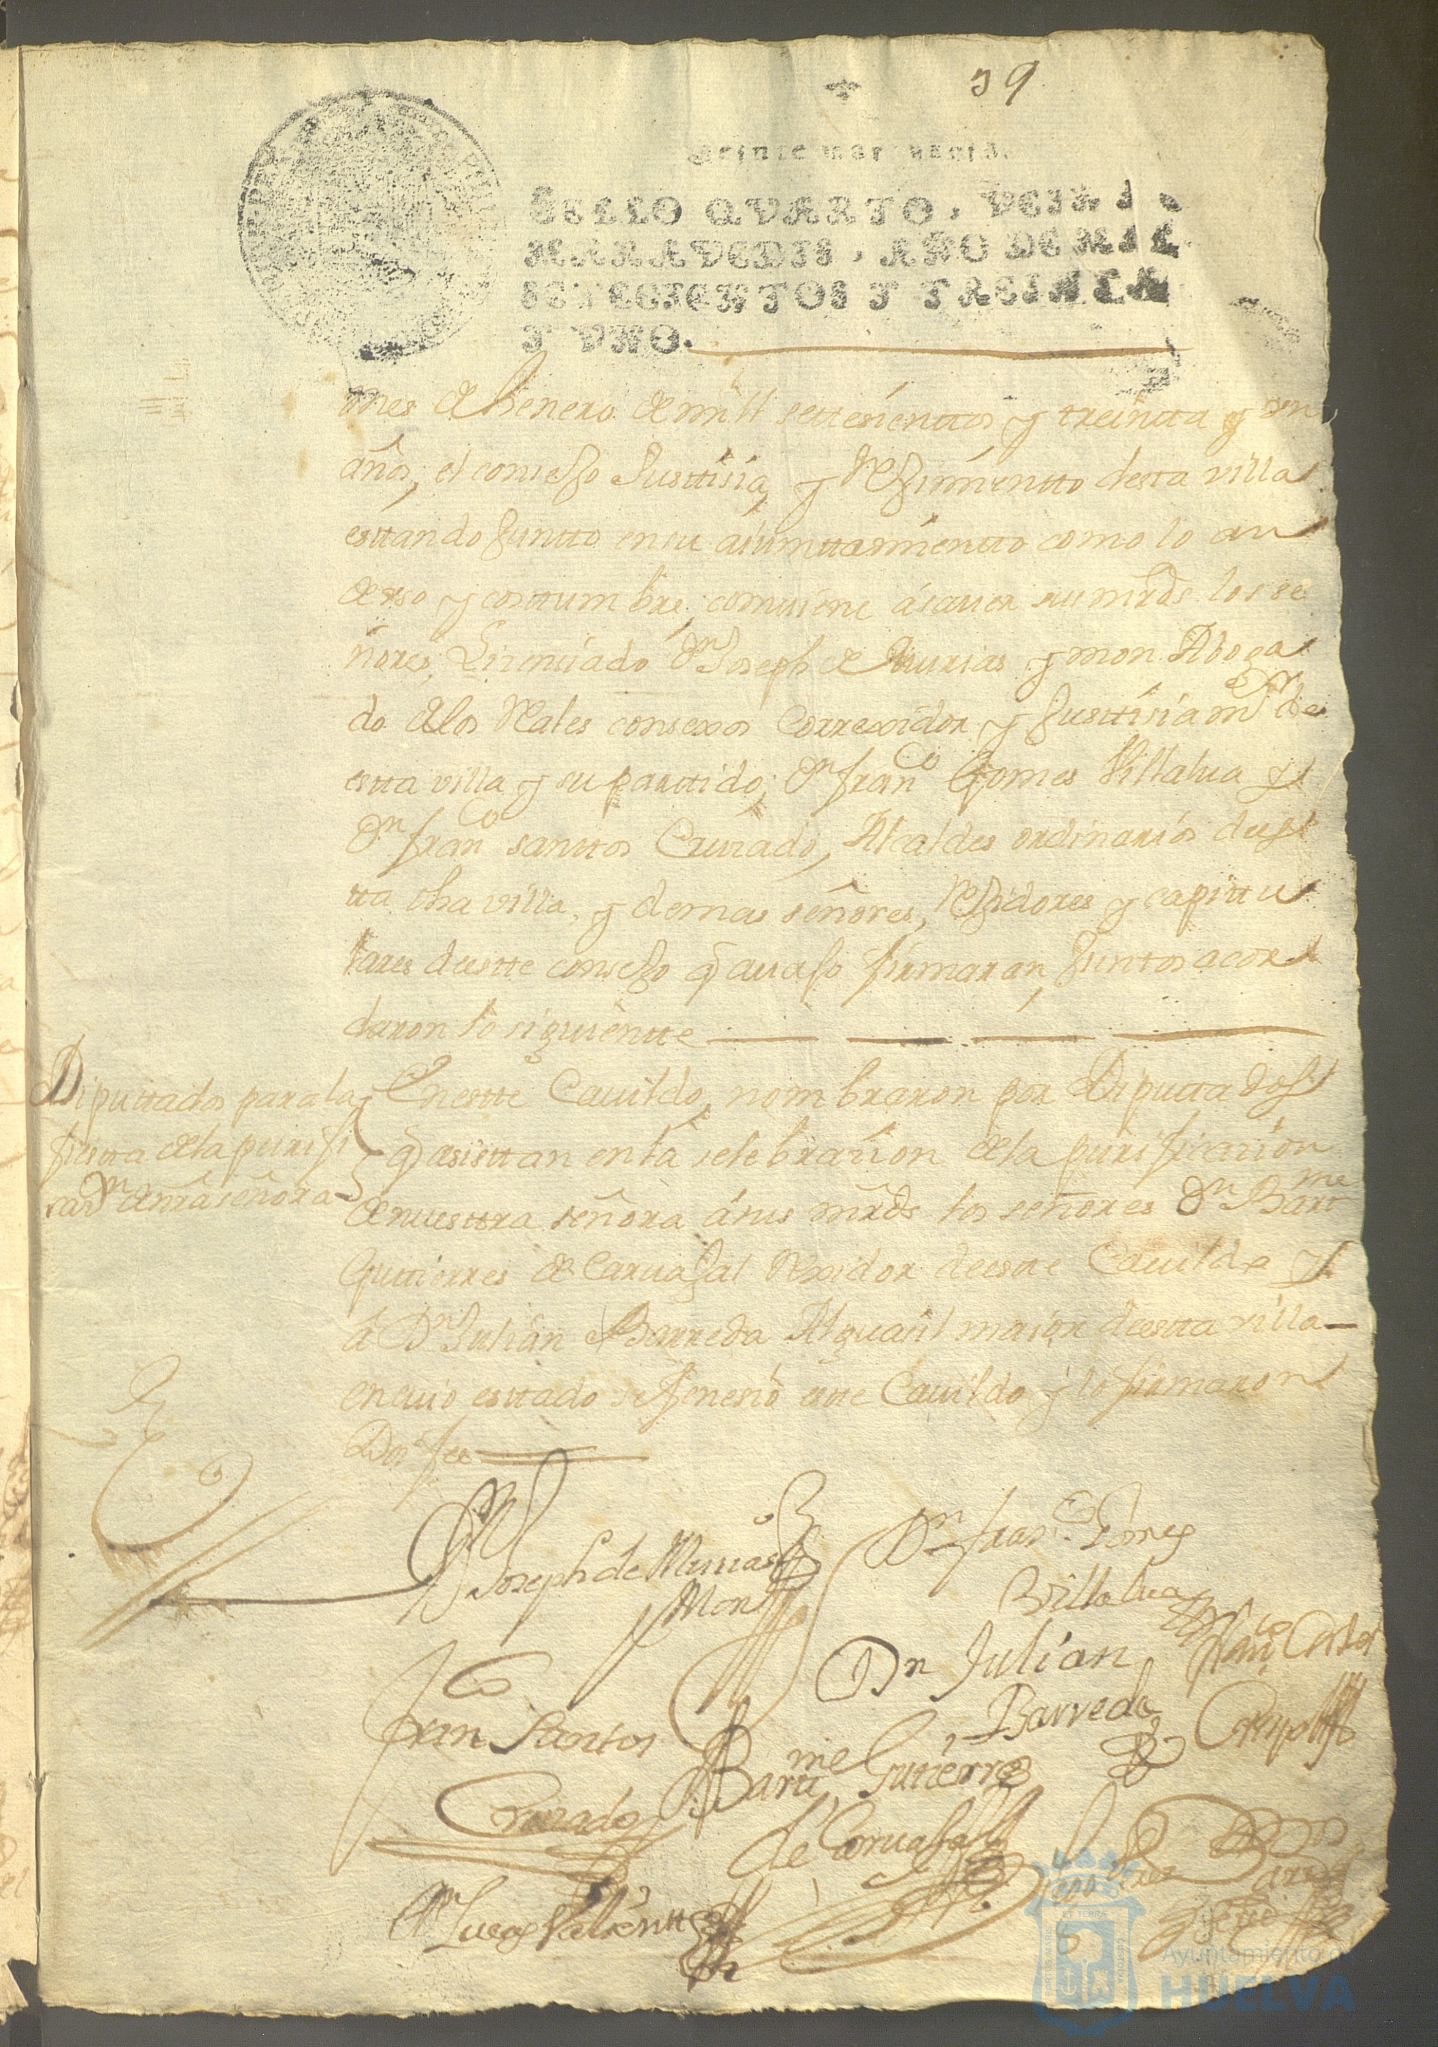 39
Veinte maravedis.
SELLO QVARTO, VEINTE
MARAVEDIS, AÑO DE MIL
SETECIENTOS Y TREINTA
Y VNO.
mes de henero de mill settesienttos y treintta y un
años, el consejo Justtisia, y Rejimientto desta villa
esttando Juntto en su aiunttamientto como lo an
de uso y costtumbre, comuiene ásauer sus mrds. los se
ñores Lizenciado Dn. Joseph de Murias y mon Aboga
do de los Rales consexos Correxidor y Justtisia mr. de
estta villa y su parttido; Dn. franco Gomes Villalua y
Dn. franco santtos Cruzado, Alcaldes ordinarios dees
tta dha villa, y demas señores, Rejidores y capittu
lares deestte consejo q auajo firmaran, Juntos acor
daron lo siguientte
Diputtados para la
fiesta de la purifi
cazon. de nra señora
Enestte Cauildo, nombraron por Diputtados
q asisttan en la selebrazion de la purificazion
de nuesttra señora á sus mrds. los señores Dn. Bartme
Gutierres de Caruajal Rexidor deeste Cauildo y
á Dn. Julian Barreda Alguasil maior deestta villa
en cuio esttado se fenesio este Cauildo y lo firmaron
Doi fee
Joseph de Murias
Mon
Dn. franco. Gomes
Villalua
Dn Julian
Barreda
Franco Santos
Cruzado
Bartme Gutierres
de Caruajal
Lucas Valientte
Ayuntamiento de
HUELVA